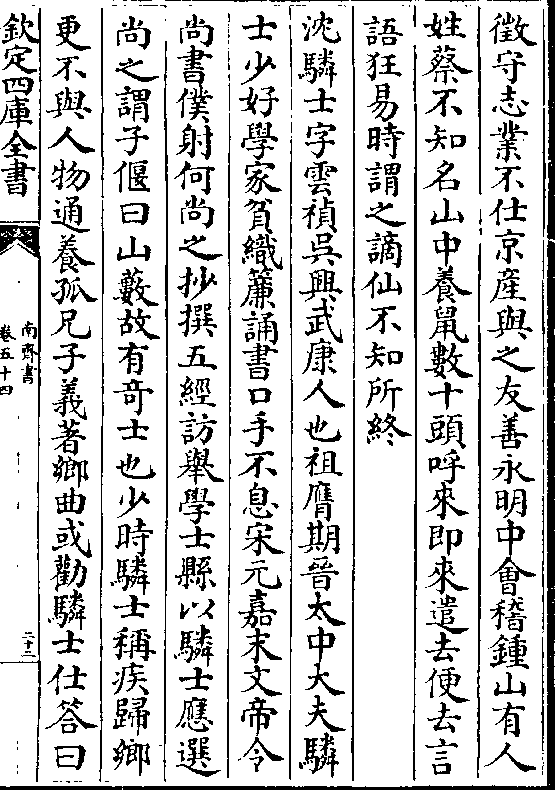 徵守志業不仕京産與之友善永明中會稽鍾山有人
姓蔡不知名山中養鼠數十頭呼來即來遣去便去言
語狂易時謂之謫仙不知所終
沈驎士字雲禎吳興武康人也祖膺期晉太中大夫驎
士少好學家貧織簾誦書口手不息宋元嘉末文帝令
尚書僕射何尚之抄撰五經訪舉學士縣以驎士應選
尚之謂子偃曰山藪故有奇士也少時驎士稱疾歸鄉
更不與人物通養孤兄子義著鄉曲或勸驎士仕答曰
欽定四庫全書
南齊書
卷五十四
二十三